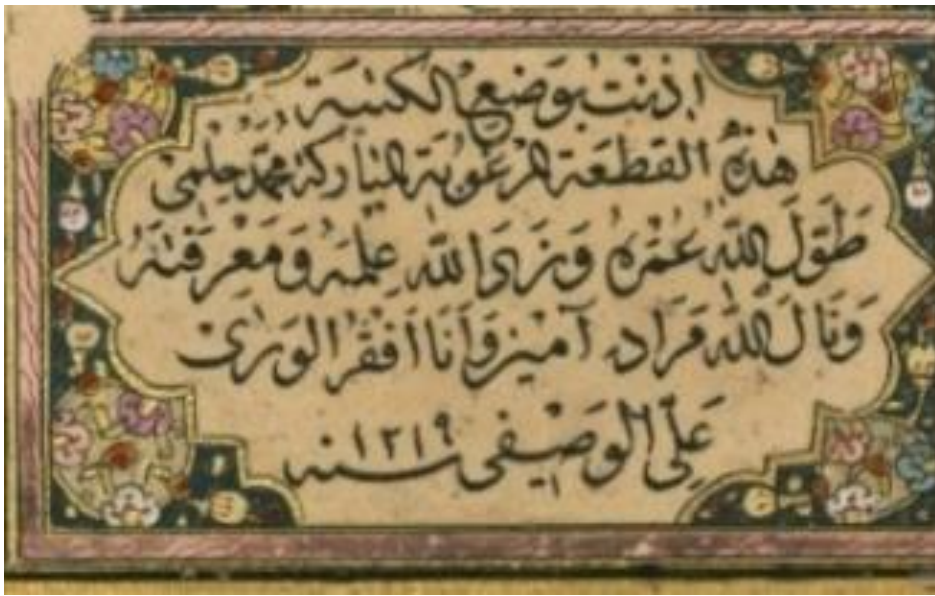 اذنت بوضع الكتبة
هذه القطعة المرغوبة المباركة محمد حلمى
طول الله عمره وزاد الله علمه ومعرفته
ونال الله مراده آمين وانا افقر الورى
على الوصفى سنه ١٢١٩